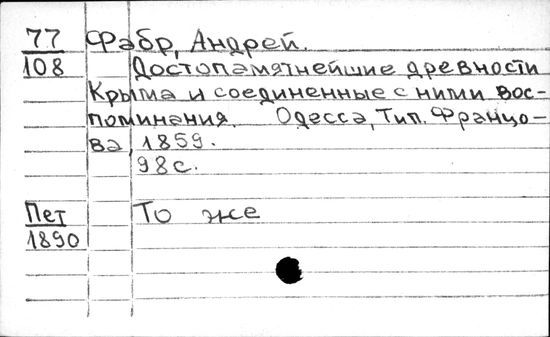 77 Фабр, Андрей.
108 Достопамятнейшие древности
Крыма и соединенные с ними вос-
поминания. Одесса, Тип. Францо-
ва, 1859.
98 с.
Пет То же
1890